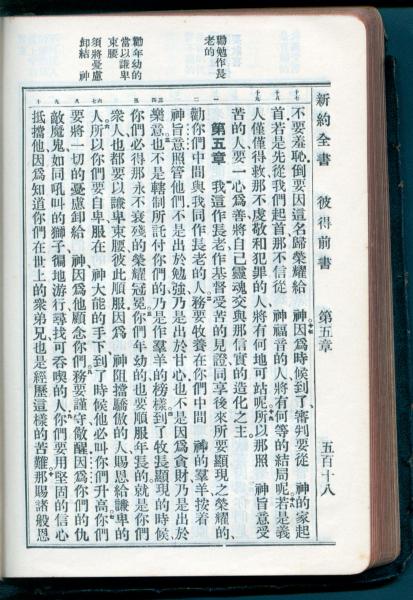 新約全書 彼得前書 第五章 五百十八
勸勉作長
老的
勸年幼的
當以謙卑
束腰
須將憂慮
卸給 神
不要羞恥、倒要因這名歸榮耀給 神因爲時候到了、審判要從 神的家起
首若是先從我們起首那不信從 神福音的人將有何等的結局呢若是義
人僅僅得救那不虔敬和犯罪的人將有何地可站呢所以那照 神旨意受
苦的人要一心爲善將自己靈魂交與那信實的造化之主
第五章 我這作長老作基督受苦的見證同享後來所要顯現之榮耀的
勸你們中間與我同作長老的人務要牧養在你們中間 神的羣羊按着
神旨意照管他們不是出於勉強乃是出於甘心也不是因爲貪財乃是出於
樂意也不是轄制所託付你們的乃是作羣羊的榜樣到了牧長顯現的時候
你們必得那永不衰殘的榮耀冠冕你們年幼的也要順服年長的就是你們
衆人也都要以謙卑束腰彼此順服因爲 神阻擋驕傲的人賜恩給謙卑的
人所以你們要自卑服在 神大能的手下到了時候他必叫你們升高你們
要將一切的憂慮卸給 神因爲他顧念你們務要謹守儆醒因爲你們的仇
敵魔鬼如同吼叫的獅子徧地游行尋找可吞喫的人你們要用堅固的信心
抵擋他因爲知道你們在世上的衆弟兄也是經歷這樣的苦難那賜諸般恩